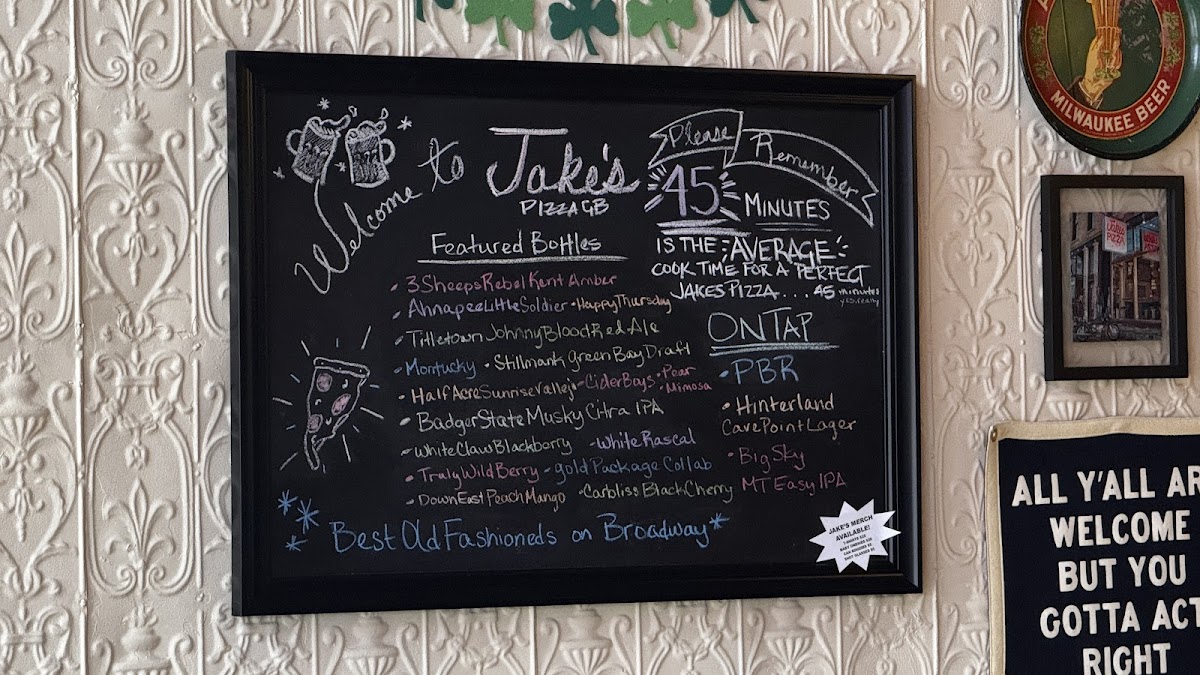 Welcome to Jake's
PIZZA GB
Please Remember
45 MINUTES
IS THE AVERAGE
COOK TIME FOR A PERFECT
JAKES PIZZA.... 45 minutes
yes, really
Featured Bottles
• 3 Sheeps Rebel Kent Amber
• Ahnapee Little Soldier • Happy Thursday
• Titletown Johnny Blood Red Ale
• Montucky • Stillmank Green Bay Draft
• Half Acre Sunrise Vallejo • Cider Boys • Pear
• Mimosa
• Badger State Musky Citra IPA
• White Claw Blackberry • White Rascal
• Truly Wild Berry • gold Package Collab
• Down East Peach Mango • Carbliss Black Cherry
ON TAP
• PBR
• Hinterland
Cave Point Lager
• Big Sky
MT Easy IPA
Best Old Fashioneds on Broadway
JAKE'S MERCH
AVAILABLE!
MILWAUKEE BEER
PIZZA
ALL Y'ALL AR
WELCOME
BUT YOU
GOTTA ACT
RIGHT